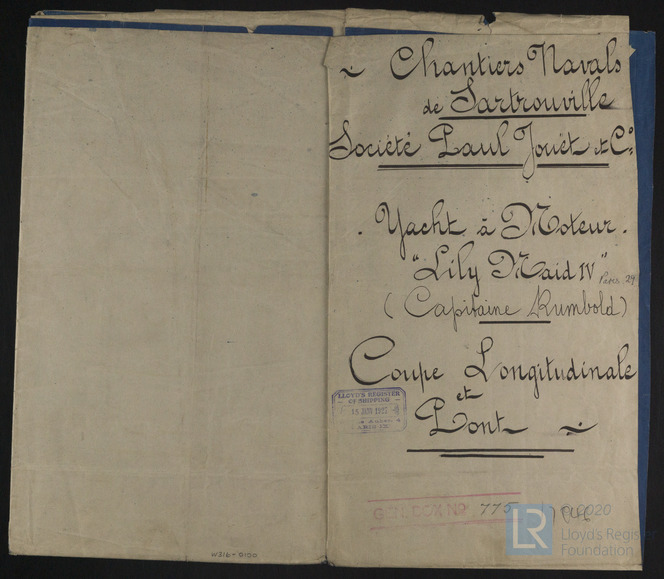 Chantiers Navals
de Sartrouville
Société Paul Jouët et Co:
Yacht à Moteur.
"Lily Maid IV"
Paris 29
(Capitaine Rumbold)
Coupe Longitudinale
et
Pont
LLOYD'S REGISTER
OF SHIPPING
JAN 1927
PARIS
GEN. BOX No 775
W316-0100
2020
LR
Lloyd's Register
Foundation